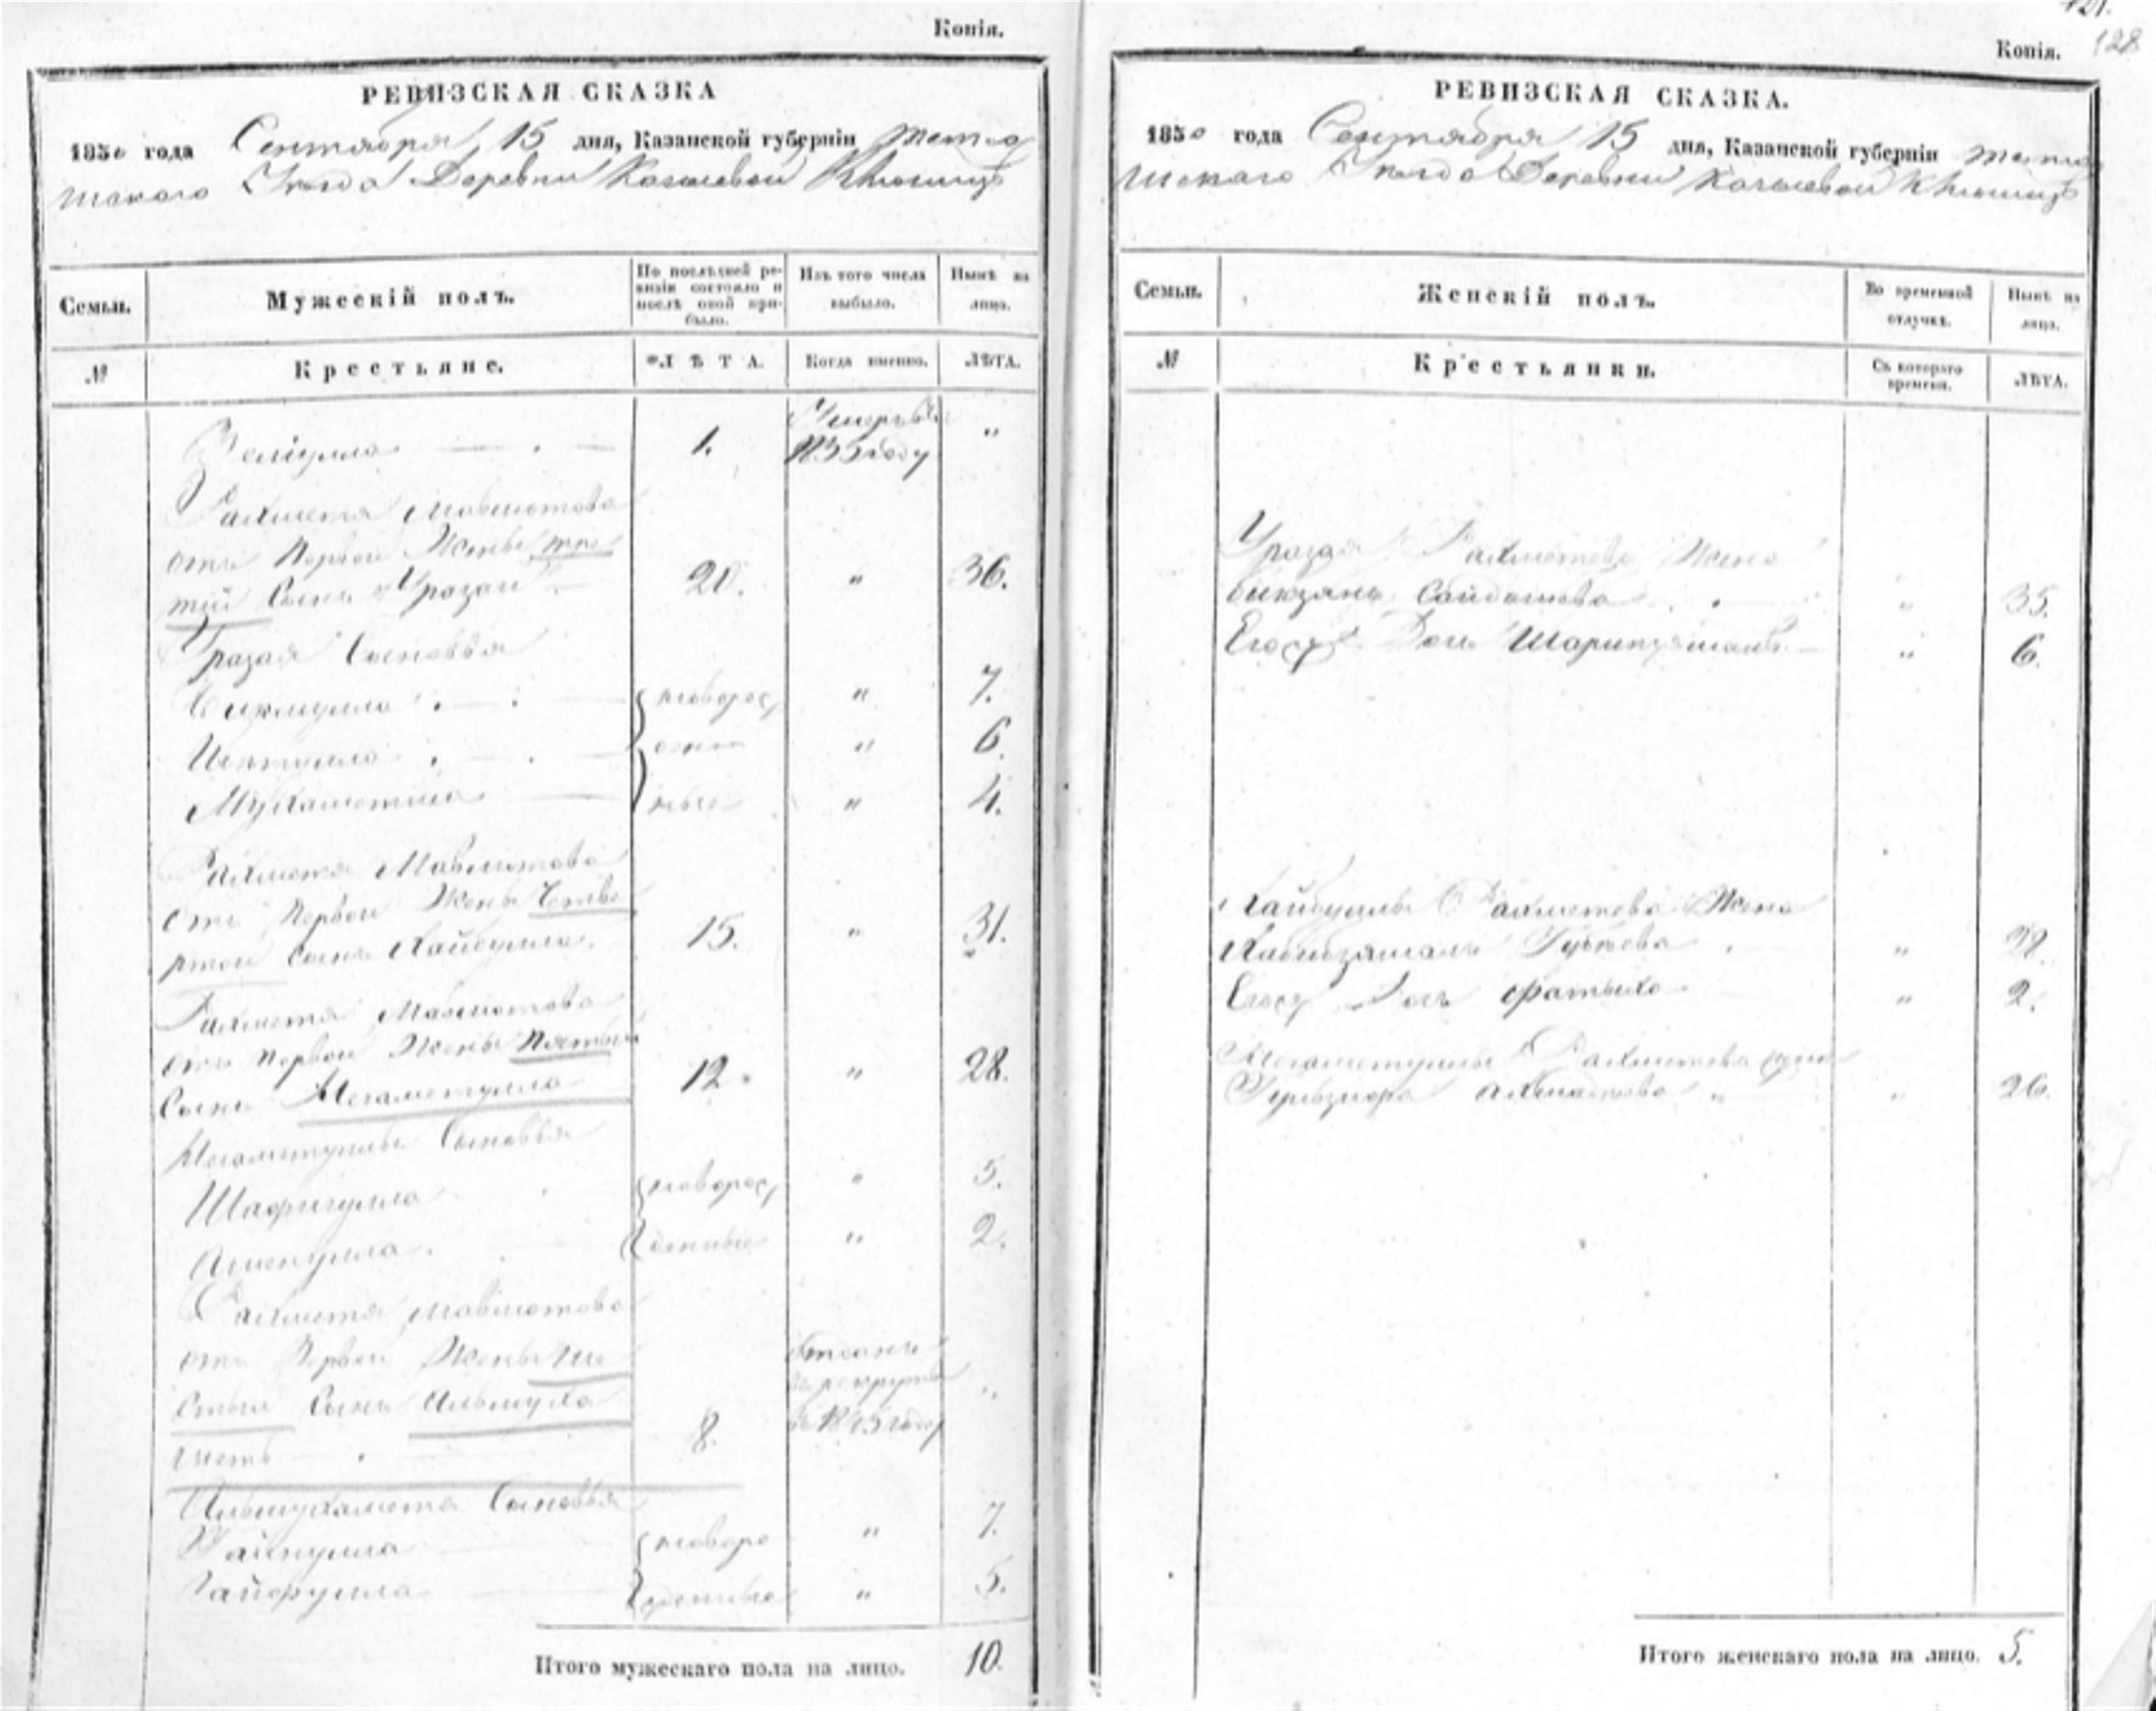 Копія.
РЕВИЗСКАЯ СКАЗКА
1850 года Сентября 15 дня, Казанской губерніи Тетю
шскаго Уѣзда Деревни Кляшевой
Семьи.
Мужескій полъ.
По послѣдней ре-
визіи состояло и
послѣ оной при-
было.
Изъ того числа
выбыло.
Нынѣ на
лицо.
№
Крестьяне.
ЛѢТА.
Когда именно.
ЛѢТА.
Велiулла 1. Умеръ въ
1835 году „
Рахметя Мавлютова
отъ Первой Жены тре
тій Сынъ Уразай 20. „ 36.
Уразая Сыновья
Бикмулла новорож „ 7.
Ишмулла ден „ 6.
Мухаметша ные „ 4.
Рахметя Мавлютова
отъ Первой Жены Четве
ртой Сынъ Хайбулла. 15. „ 31.
Рахметя Мавлютова
отъ Первой Жены Пятый
Сынъ Негаметулла 12. „ 28.
Негаметуллы Сыновья
Шафигулла новорож „ 5.
денные „ 2.
Рахметя Мавлютова
отъ Первой Жены Ше
стой Сынъ Ильмуха
метъ 8. Отданъ
въ рекруты
въ 1845 году „
Ильмухамета Сыновья
Зайнулла новоро „ 7.
Гайфулла жденные „ 5.
Итого мужескаго пола на лицо. 10.
Копія. 128
РЕВИЗСКАЯ СКАЗКА.
1850 года Сентября 15 дня, Казанской губерніи Тетю
шскаго Уѣзда Деревни
Семьи.
Женскій полъ.
Во временной
отлучкѣ.
Нынѣ на
лицо.
№
Крестьянки.
Съ котораго
времени.
ЛѢТА.
Уразая Рахметева Жена
Сайдашева „ 35.
Его Дочь Шарипзямалъ „ 6.
Хайбуллы Рахметева Жена
Хабибзямалъ Губеева „
Его Дочь Фатыха „ 2.
Негаметуллы Рахметева Жена
Гульзюгра Ахметова „ 26.
Итого женскаго пола на лицо. 5.